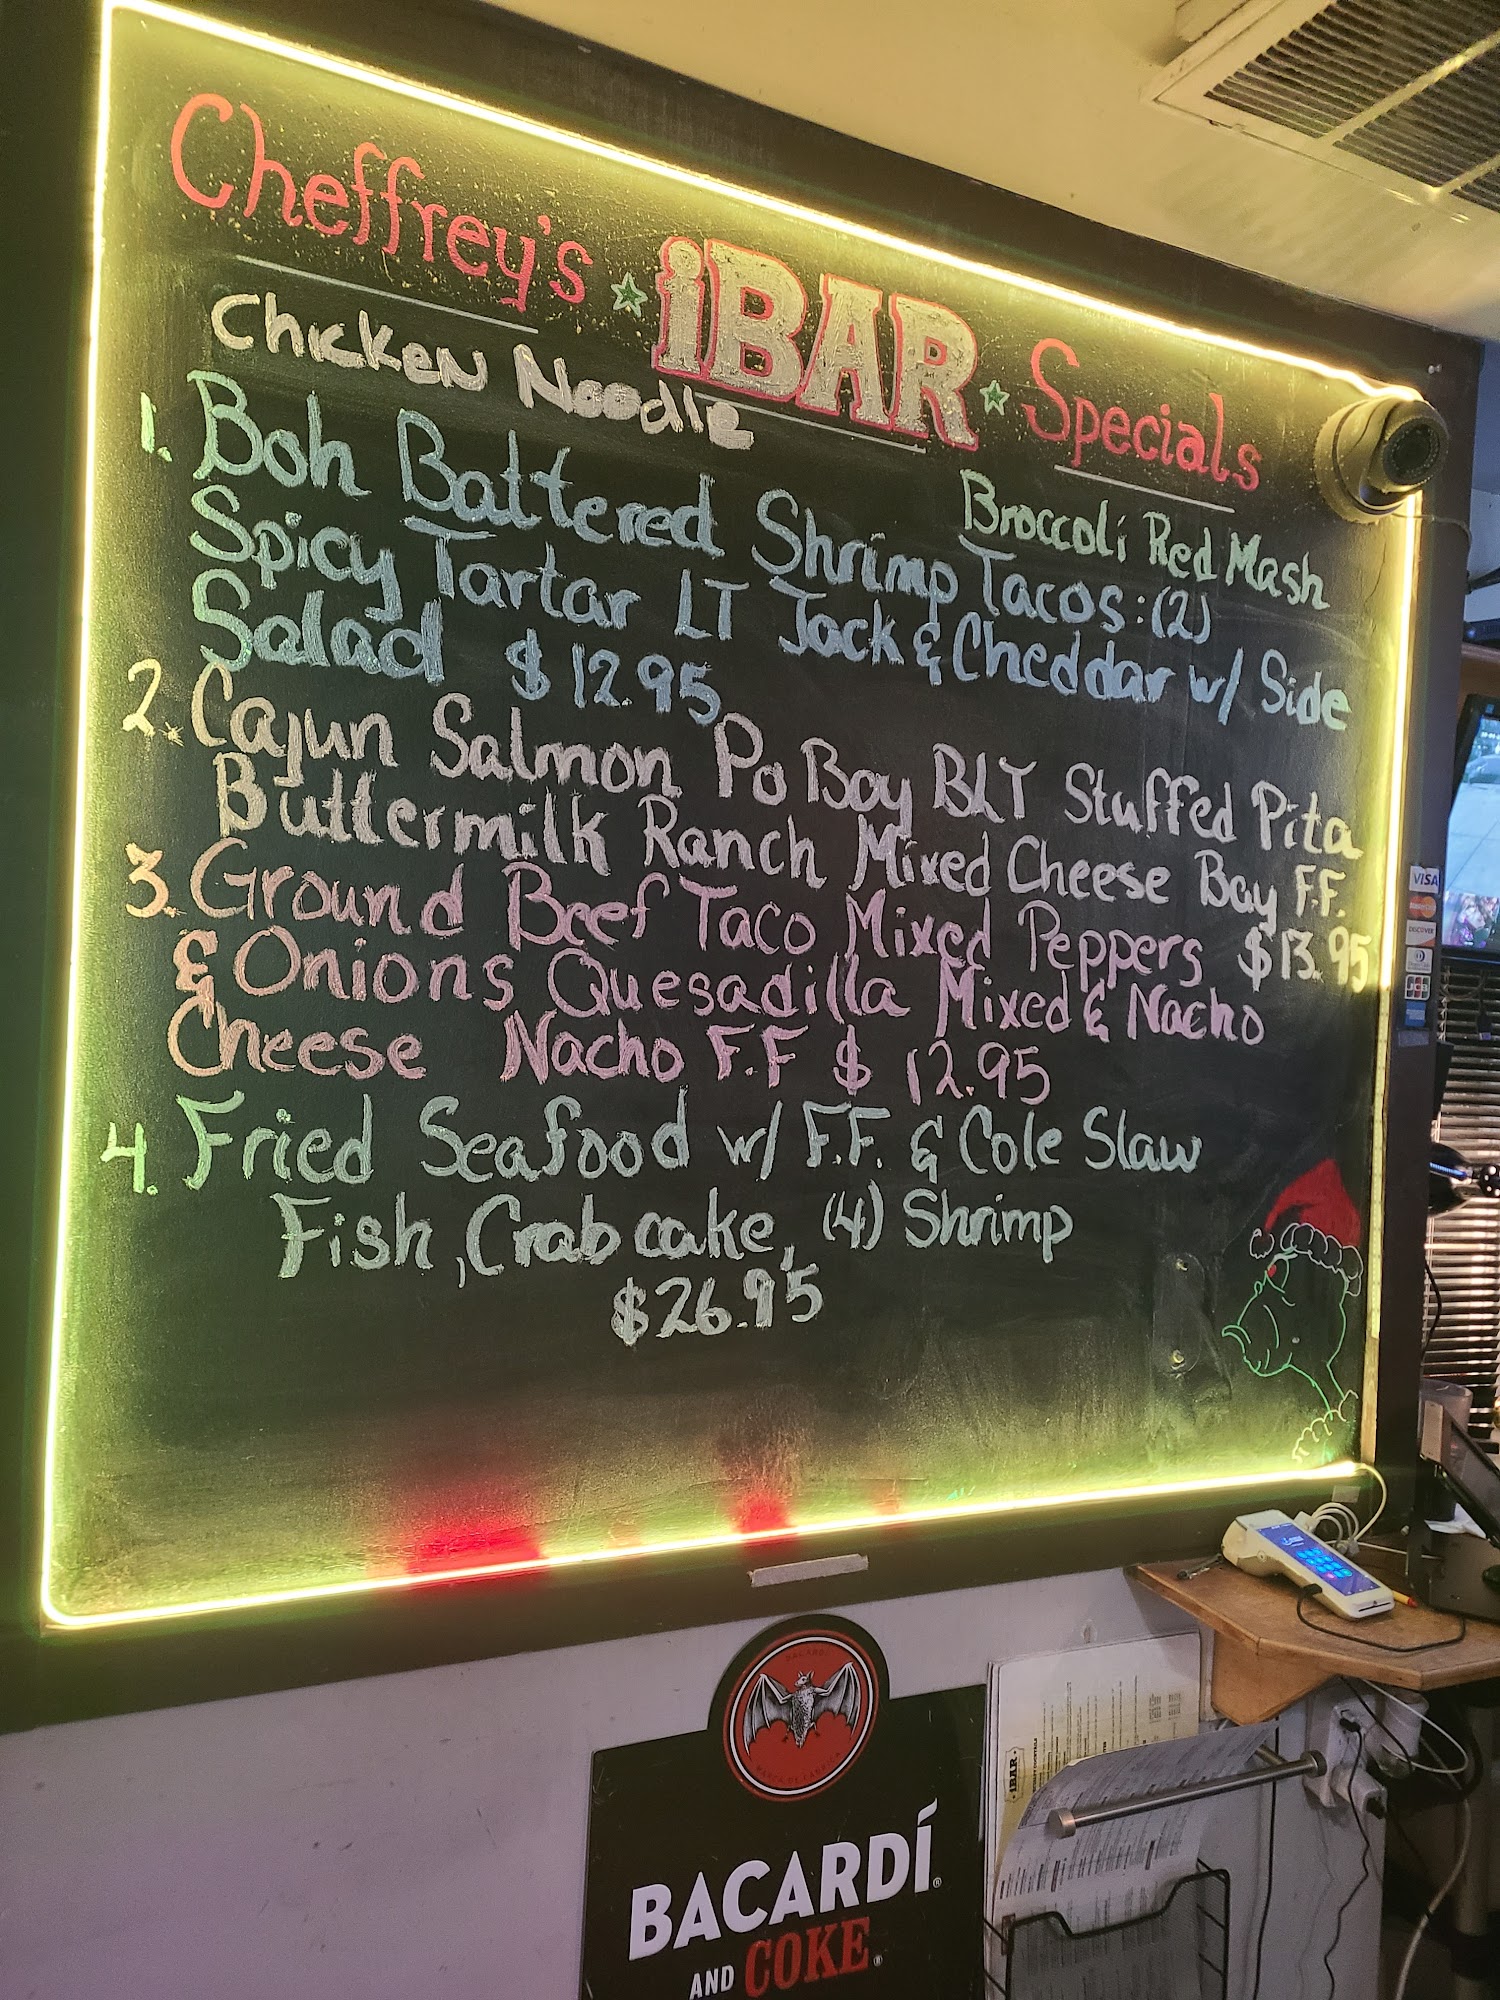 Cheffrey's iBAR Specials
Chicken Noodle
Broccoli Red Mash
1. Boh Battered Shrimp Tacos: (2)
Spicy Tartar LT Jack & Cheddar w/ Side
Salad $12.95
2. Cajun Salmon Po Boy BLT Stuffed Pita
Buttermilk Ranch Mixed Cheese Bay F.F.
$13.95
3. Ground Beef Taco Mixed Peppers
& Onions Quesadilla Mixed & Nacho
Cheese Nacho F.F $12.95
4. Fried Seafood w/ F.F. & Cole Slaw
Fish, Crab cake, (4) Shrimp
$26.95
VISA
DISCOVER
JCB
BACARDÍ
BACARDÍ
AND COKE
iBAR